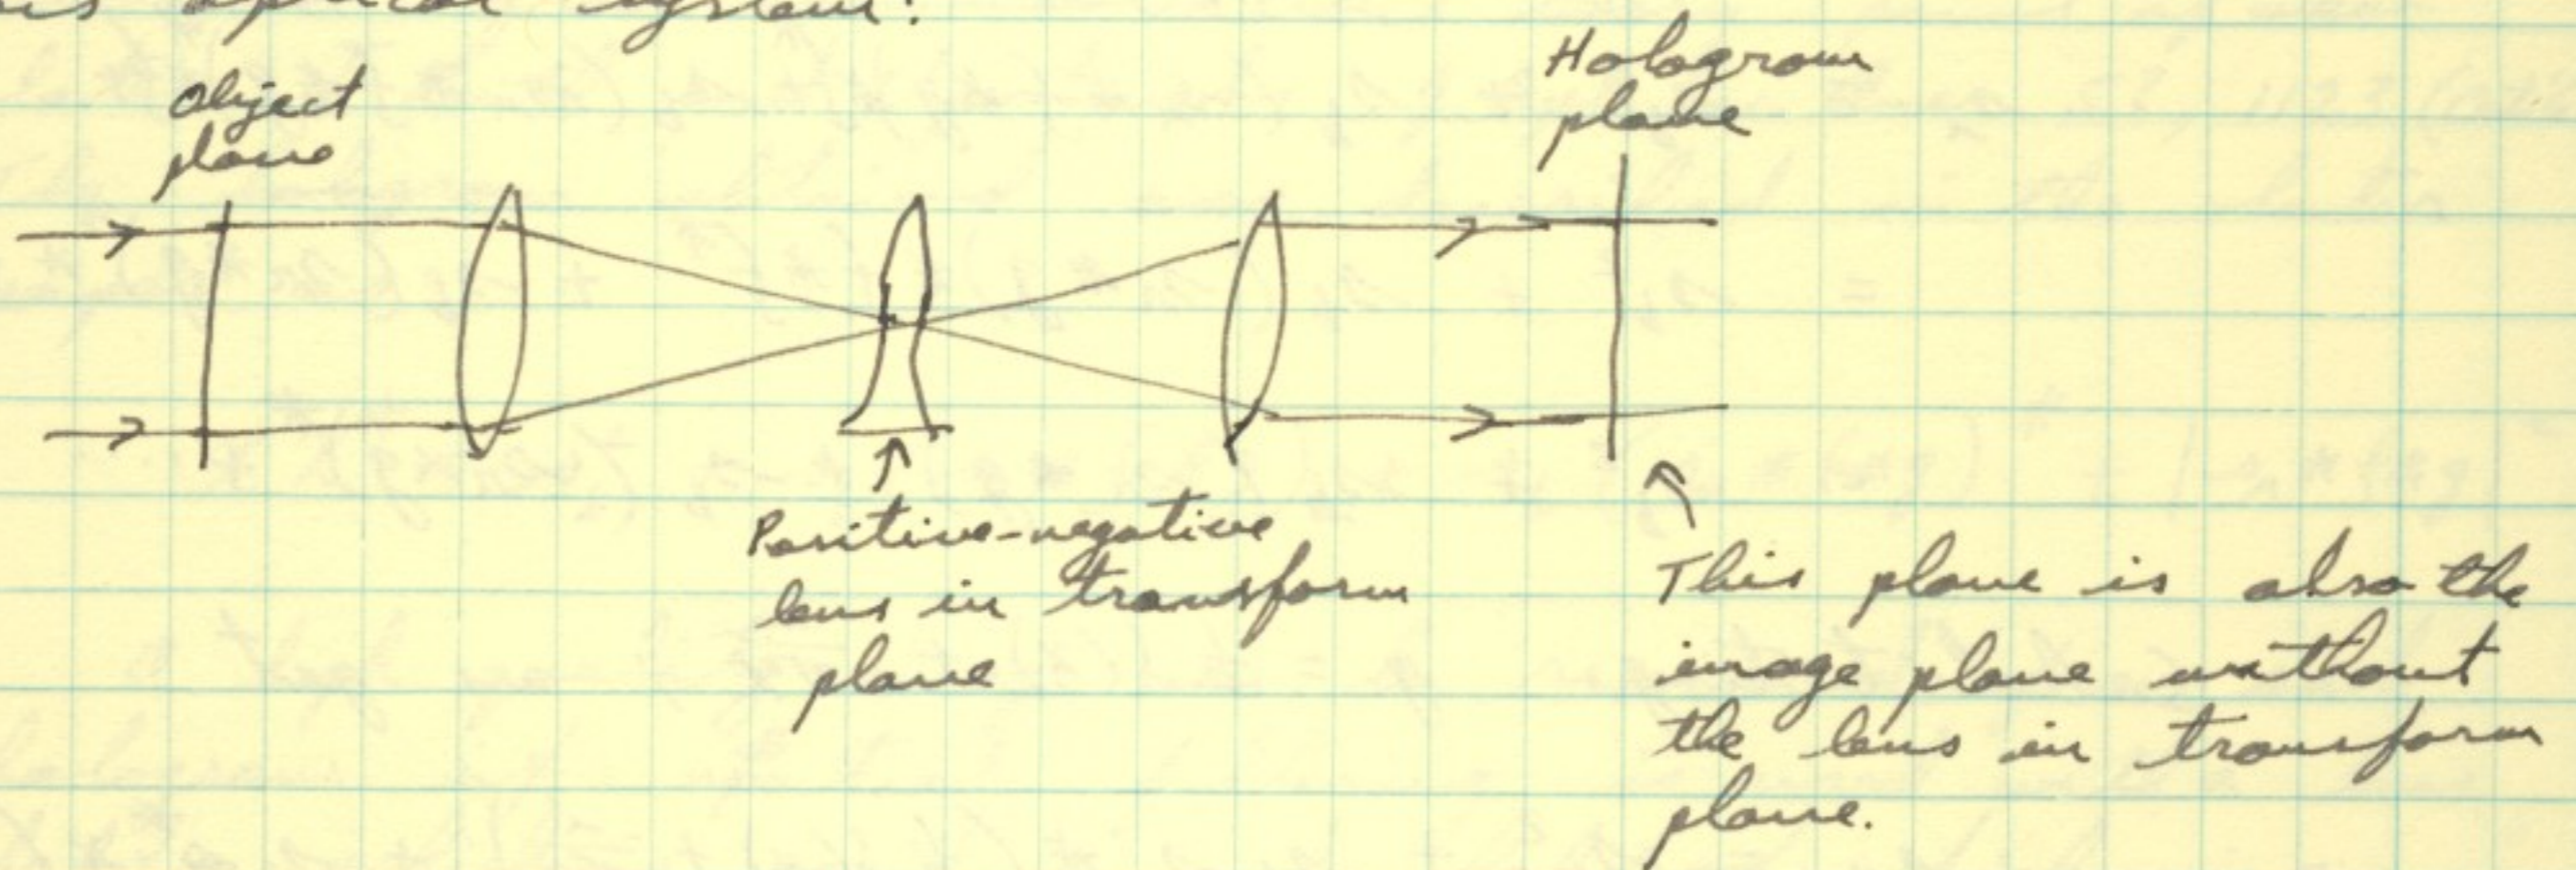 optical system:
Object
plane
Hologram
plane
Positive-negative
lens in transform
plane
This plane is also the
image plane without
the lens in transform
plane.